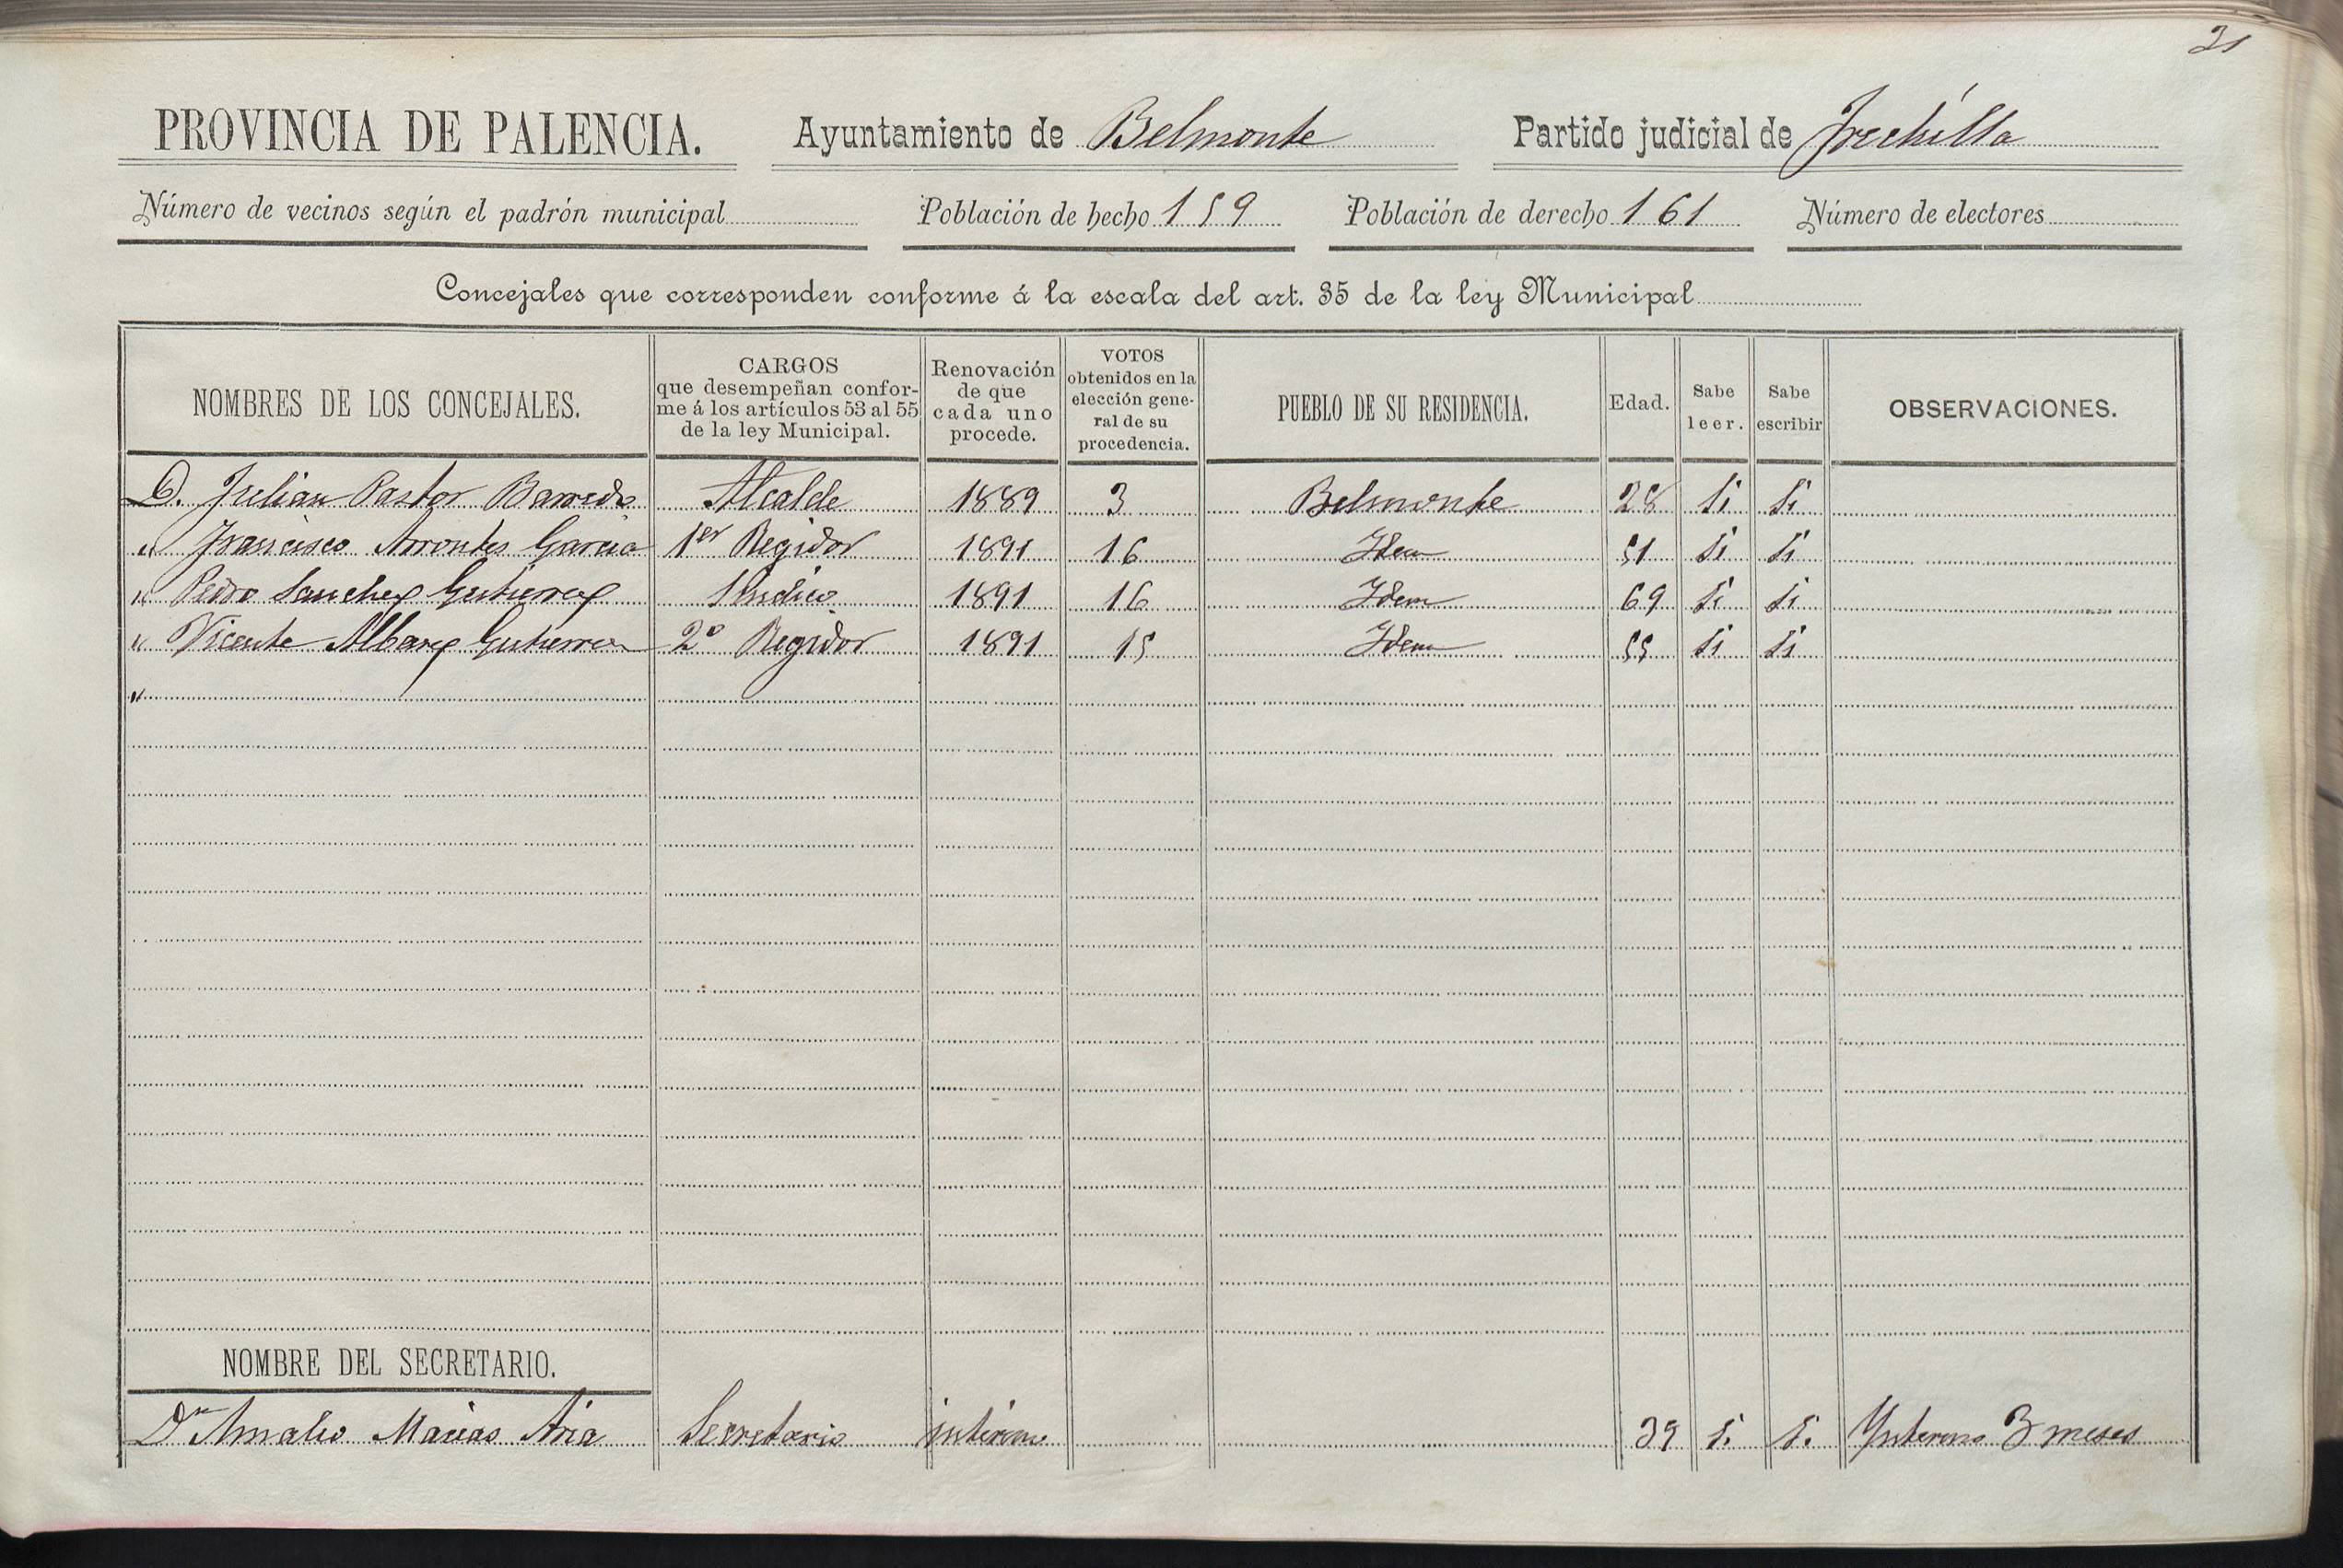 21
PROVINCIA DE PALENCIA. Ayuntamiento de Belmonte Partido judicial de Frechilla
Número de vecinos según el padrón municipal Población de hecho 159 Población de derecho 161 Número de electores
Concejales que corresponden conforme á la escala del art. 35 de la ley Municipal
NOMBRES DE LOS CONCEJALES. CARGOS que desempeñan confor-me á los artículos 53 al 55 de la ley Municipal. Renovación de que cada uno procede. VOTOS obtenidos en la elección gene-ral de su procedencia. PUEBLO DE SU RESIDENCIA. Edad. Sabe leer. Sabe escribir OBSERVACIONES.
D. Julian Pastor Barredo Alcalde 1889 3 Belmonte 28 Si Si
" Francisco Arrontes Garcia 1er Regidor 1891 16 Idem 51 Si Si
" Pedro Sanchez Gutierrez Sindico 1891 16 Idem 69 Si Si
" Vicente Albarez Gutierrez 2º Regidor 1891 15 Idem 55 Si Si
"
NOMBRE DEL SECRETARIO.
Dn Amalio Macias Secretario interino 39 S. S. Ynterino 3 meses